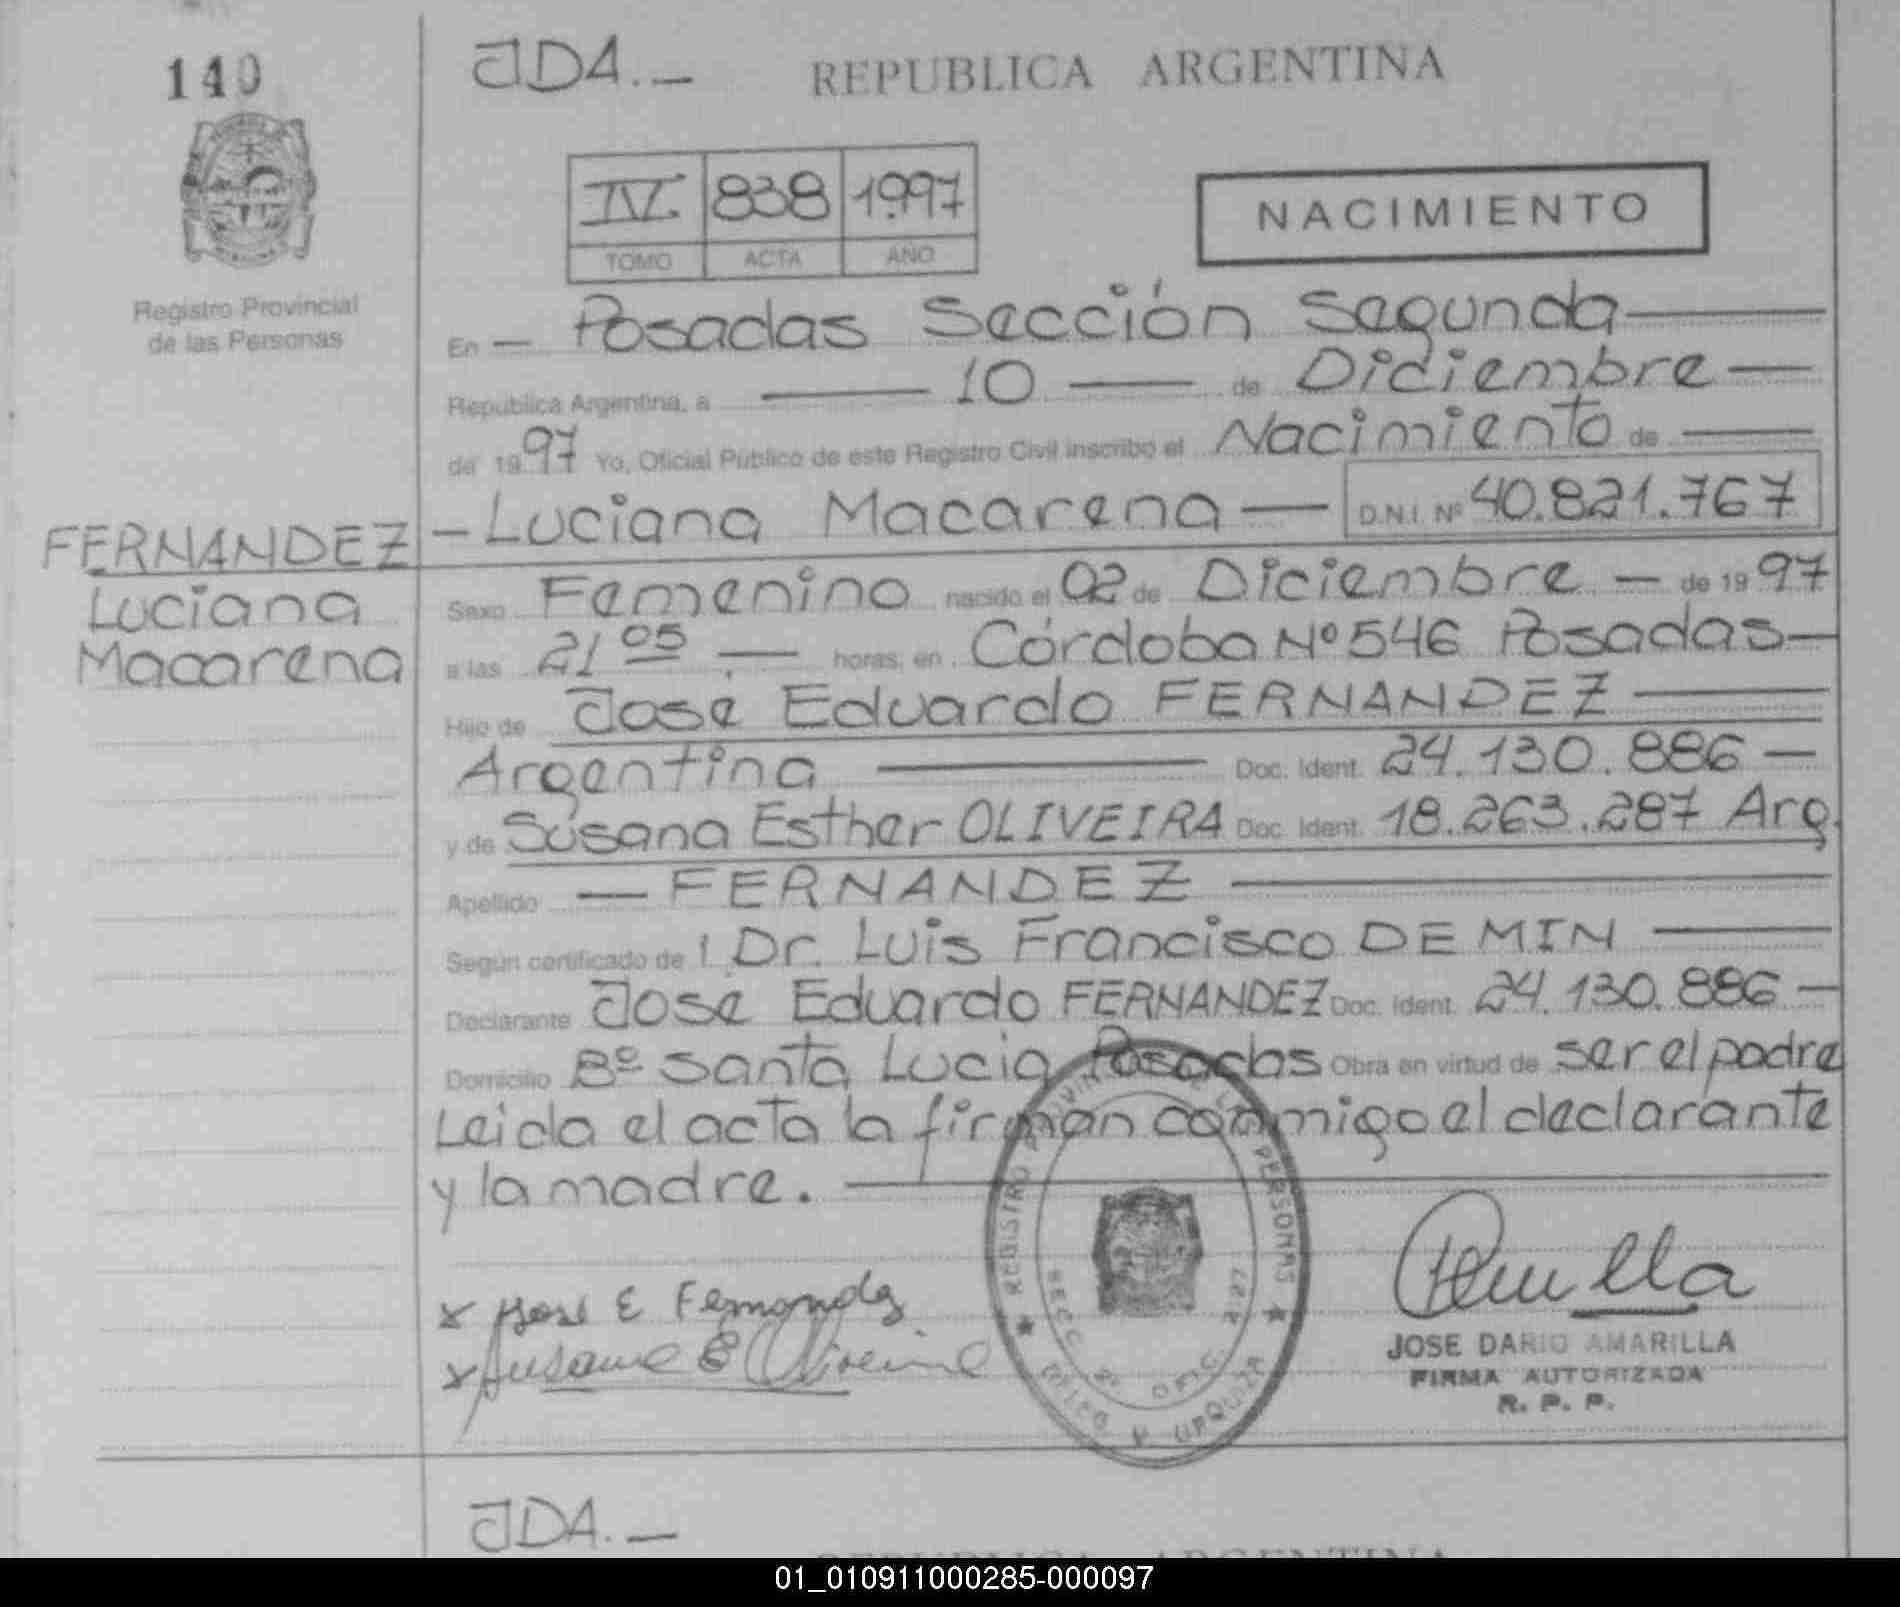 140
JDA.—
REPUBLICA ARGENTINA
IV 838 1997
TOMO ACTA AÑO
NACIMIENTO
Registro Provincial
de las Personas
En — Posadas Sección Segunda —
República Argentina, a — 10 — de Diciembre —
de 1997 Yo, Oficial Público de este Registro Civil inscribo el Nacimiento de —
— Luciana Macarena — D.N.I. Nº 40.821.767
FERNANDEZ
Luciana
Macarena
Sexo Femenino nacido el 02 de Diciembre — de 1997
a las 21 05 . — horas, en Córdoba Nº 546 Posadas —
Hijo de José Eduardo FERNANDEZ —
Argentina — Doc. Ident. 24.130.886 —
y de Susana Esther OLIVEIRA Doc. Ident. 18.263.287 Arg.
Apellido — FERNANDEZ —
Según certificado de Dr. Luis Francisco DE MIN —
Declarante José Eduardo FERNANDEZ Doc. Ident. 24.130.886 —
Domicilio Bº Santa Lucia Posadas Obra en virtud de ser el padre
Leida el acta la firman conmigo el declarante
y la madre. —
x José E Fernandez
x Susana E Oliveira
REGISTRO PROVINCIAL DE LAS PERSONAS
SECC. 2º OFIC.
URQUIZA
JOSE DARIO AMARILLA
FIRMA AUTORIZADA
R. P. P.
JDA.—
REPUBLICA ARGENTINA
01_010911000285-000097